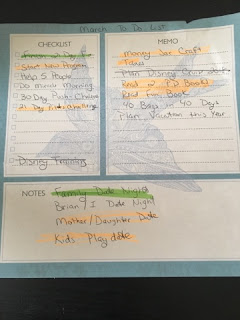 March To Do List
CHECKLIST
Finish 21 Day Fix
Start New Program
Help 5 People
Do Month Morning
30 Day Push Challenge
21 Day Kids Challenge
Disney Training
MEMO
Money Sox Craft
Taxes
Plan Disney Cruise
Read 2 PD Books
Read Fun Book
40 Bags in 40 Days
Plan Vacation this Year
NOTES
Family Date Night
Brian & I Date Night
Mother/Daughter Date
Kids Play date